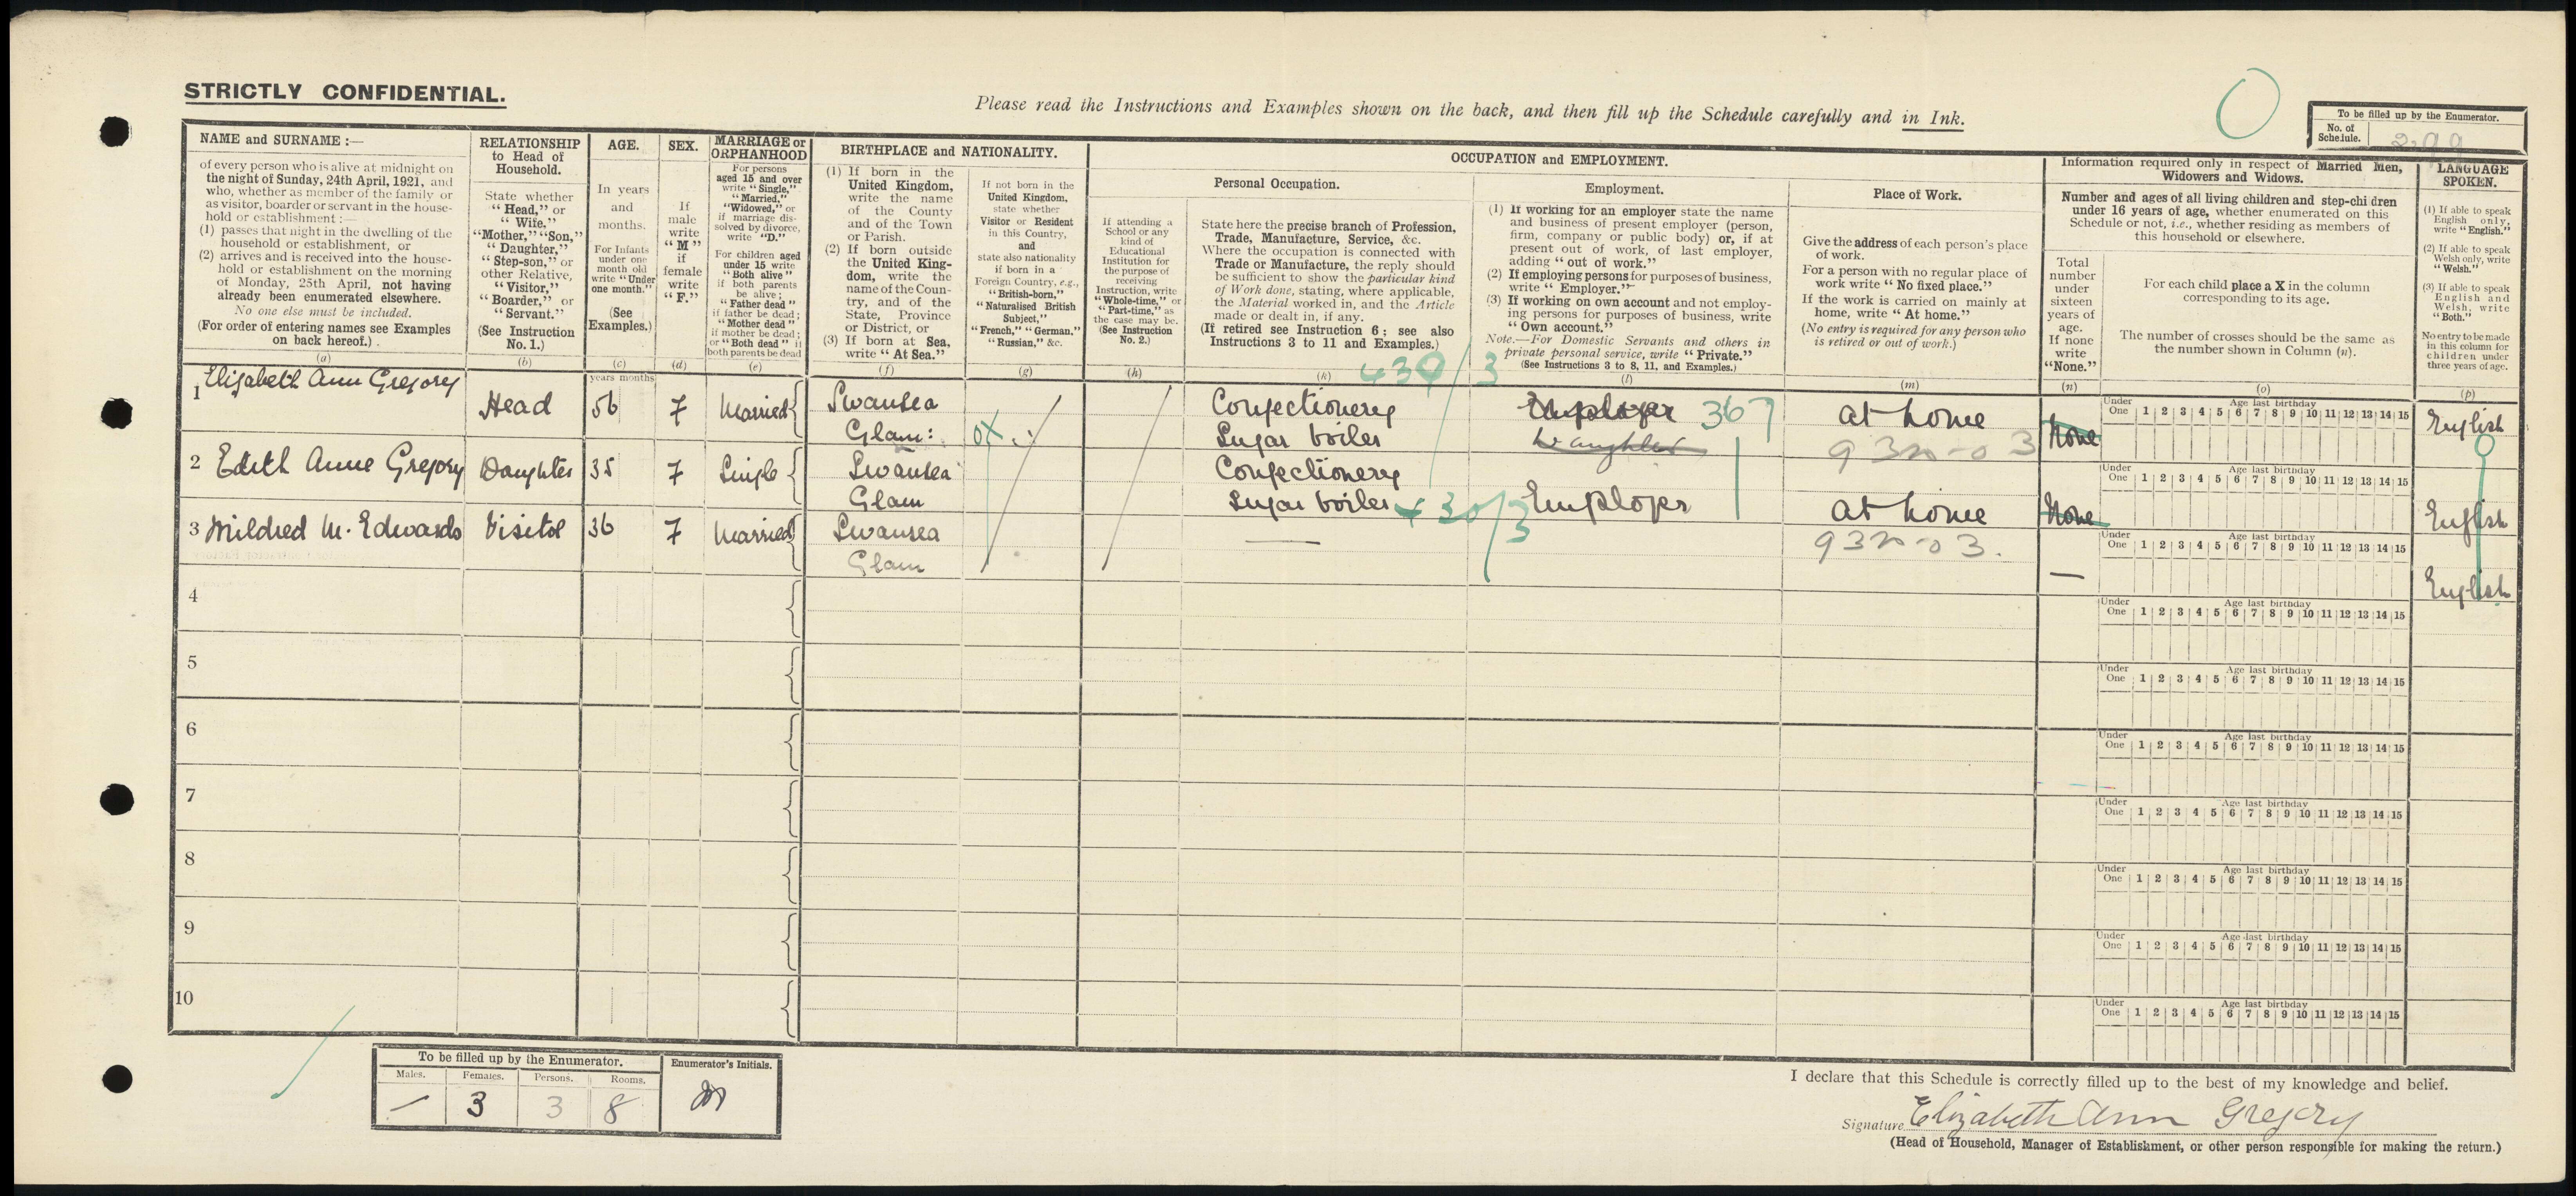 STRICTLY CONFIDENTIAL.
Please read the Instructions and Examples shown on the back, and then fill up the Schedule carefully and in Ink.
To be filled up by the Enumerator.
No. of Schedule.
299
NAME and SURNAME :—
of every person who is alive at midnight on
the night of Sunday, 24th April, 1921, and
who, whether as member of the family or
as visitor, boarder or servant in the house-
hold or establishment :—
(1) passes that night in the dwelling of the
household or establishment, or
(2) arrives and is received into the house-
hold or establishment on the morning
of Monday, 25th April, not having
already been enumerated elsewhere.
No one else must be included.
(For order of entering names see Examples
on back hereof.)
(a)
RELATIONSHIP
to Head of
Household.
State whether
"Head," or
"Wife."
"Mother," "Son,"
"Daughter,"
"Step-son," or
other Relative,
"Visitor,"
"Boarder," or
"Servant."
(See Instruction
No. 1.)
(b)
AGE.
In years
and
months.
For Infants
under one
month old
write "Under
one month."
(See
Examples.)
(c)
SEX.
If
male
write
"M"
if
female
write
"F."
(d)
MARRIAGE or
ORPHANHOOD
For persons
aged 15 and over
write "Single,"
"Married,"
"Widowed," or
if marriage dis-
solved by divorce,
write "D."
For children aged
under 15 write
"Both alive"
if both parents
be alive;
"Father dead"
if father be dead;
"Mother dead"
if mother be dead;
or "Both dead" if
both parents be dead
(e)
BIRTHPLACE and NATIONALITY.
(1) If born in the
United Kingdom,
write the name
of the County
and of the Town
or Parish.
(2) If born outside
the United King-
dom, write the
name of the Coun-
try, and of the
State, Province
or District, or
(3) If born at Sea,
write "At Sea."
(f)
If not born in the
United Kingdom,
state whether
Visitor or Resident
in this Country,
and
state also nationality
if born in a
Foreign Country, e.g.,
"British-born,"
"Naturalised British
Subject,"
"French," "German,"
"Russian," &c.
(g)
OCCUPATION and EMPLOYMENT.
If attending a
School or any
kind of
Educational
Institution for
the purpose of
receiving
Instruction, write
"Whole-time," or
"Part-time," as
the case may be.
(See Instruction
No. 2.)
(h)
Personal Occupation.
State here the precise branch of Profession,
Trade, Manufacture, Service, &c.
Where the occupation is connected with
Trade or Manufacture, the reply should
be sufficient to show the particular kind
of Work done, stating, where applicable,
the Material worked in, and the Article
made or dealt in, if any.
(If retired see Instruction 6; see also
Instructions 3 to 11 and Examples.)
(k)
Employment.
(1) If working for an employer state the name
and business of present employer (person,
firm, company or public body) or, if at
present out of work, of last employer,
adding "out of work."
(2) If employing persons for purposes of business,
write "Employer."
(3) If working on own account and not employ-
ing persons for purposes of business, write
"Own account."
Note.—For Domestic Servants and others in
private personal service, write "Private."
(See Instructions 3 to 8, 11, and Examples.)
(l)
Place of Work.
Give the address of each person's place
of work.
For a person with no regular place of
work write "No fixed place."
If the work is carried on mainly at
home, write "At home."
(No entry is required for any person who
is retired or out of work.)
(m)
Information required only in respect of Married Men,
Widowers and Widows.
Number and ages of all living children and step-chi dren
under 16 years of age, whether enumerated on this
Schedule or not, i.e., whether residing as members of
this household or elsewhere.
Total
number
under
sixteen
years of
age.
If none
write
"None."
(n)
For each child place a X in the column
corresponding to its age.
The number of crosses should be the same as
the number shown in Column (n).
(o)
LANGUAGE
SPOKEN.
(1) If able to speak
English only,
write "English."
(2) If able to speak
Welsh only, write
"Welsh."
(3) If able to speak
English and
Welsh, write
"Both."
No entry to be made
in this column for
children under
three years of age.
(p)
years months
430/3
1 Elizabeth Ann Gregory Head 56 F Married Swansea Glam: Confectionery Sugar boiler Employer Daughter 367 At home 932-03 None English
2 Edith Anne Gregory Daughter 35 F Single Swansea Glam Confectionery Sugar boiler 430/3 Employer At home 932-03. None English
3 Mildred M. Edwards Visitor 36 F Married Swansea Glam — — English
4
5
6
7
8
9
10
Under One Age last birthday 1 2 3 4 5 6 7 8 9 10 11 12 13 14 15
Under One Age last birthday 1 2 3 4 5 6 7 8 9 10 11 12 13 14 15
Under One Age last birthday 1 2 3 4 5 6 7 8 9 10 11 12 13 14 15
Under One Age last birthday 1 2 3 4 5 6 7 8 9 10 11 12 13 14 15
Under One Age last birthday 1 2 3 4 5 6 7 8 9 10 11 12 13 14 15
Under One Age last birthday 1 2 3 4 5 6 7 8 9 10 11 12 13 14 15
Under One Age last birthday 1 2 3 4 5 6 7 8 9 10 11 12 13 14 15
Under One Age last birthday 1 2 3 4 5 6 7 8 9 10 11 12 13 14 15
Under One Age last birthday 1 2 3 4 5 6 7 8 9 10 11 12 13 14 15
Under One Age last birthday 1 2 3 4 5 6 7 8 9 10 11 12 13 14 15
To be filled up by the Enumerator.
Males. Females. Persons. Rooms.
— 3 3 8
Enumerator's Initials.
I declare that this Schedule is correctly filled up to the best of my knowledge and belief.
Signature Elizabeth Ann Gregory
(Head of Household, Manager of Establishment, or other person responsible for making the return.)